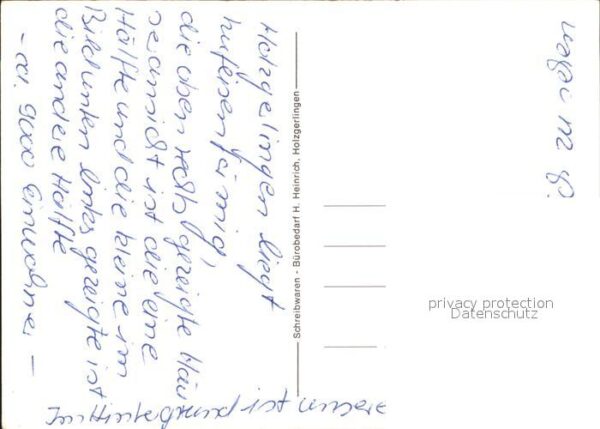 Holzgerlingen liegt
hufeisenförmig,
die oben rechts gezeigte Häu
seransicht ist die eine
Hälfte und die kleine im
Bild unten links gezeigte ist
die andere Hälfte
- ca. 9000 Einwohner. -
Schreibwaren - Bürobedarf H. Heinrich, Holzgerlingen
privacy protection
Datenschutz